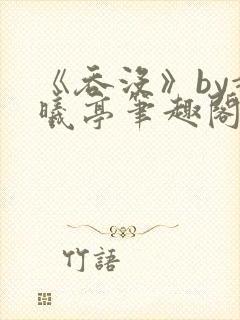 《吞没》by
曦亭笔趣阁
竹語